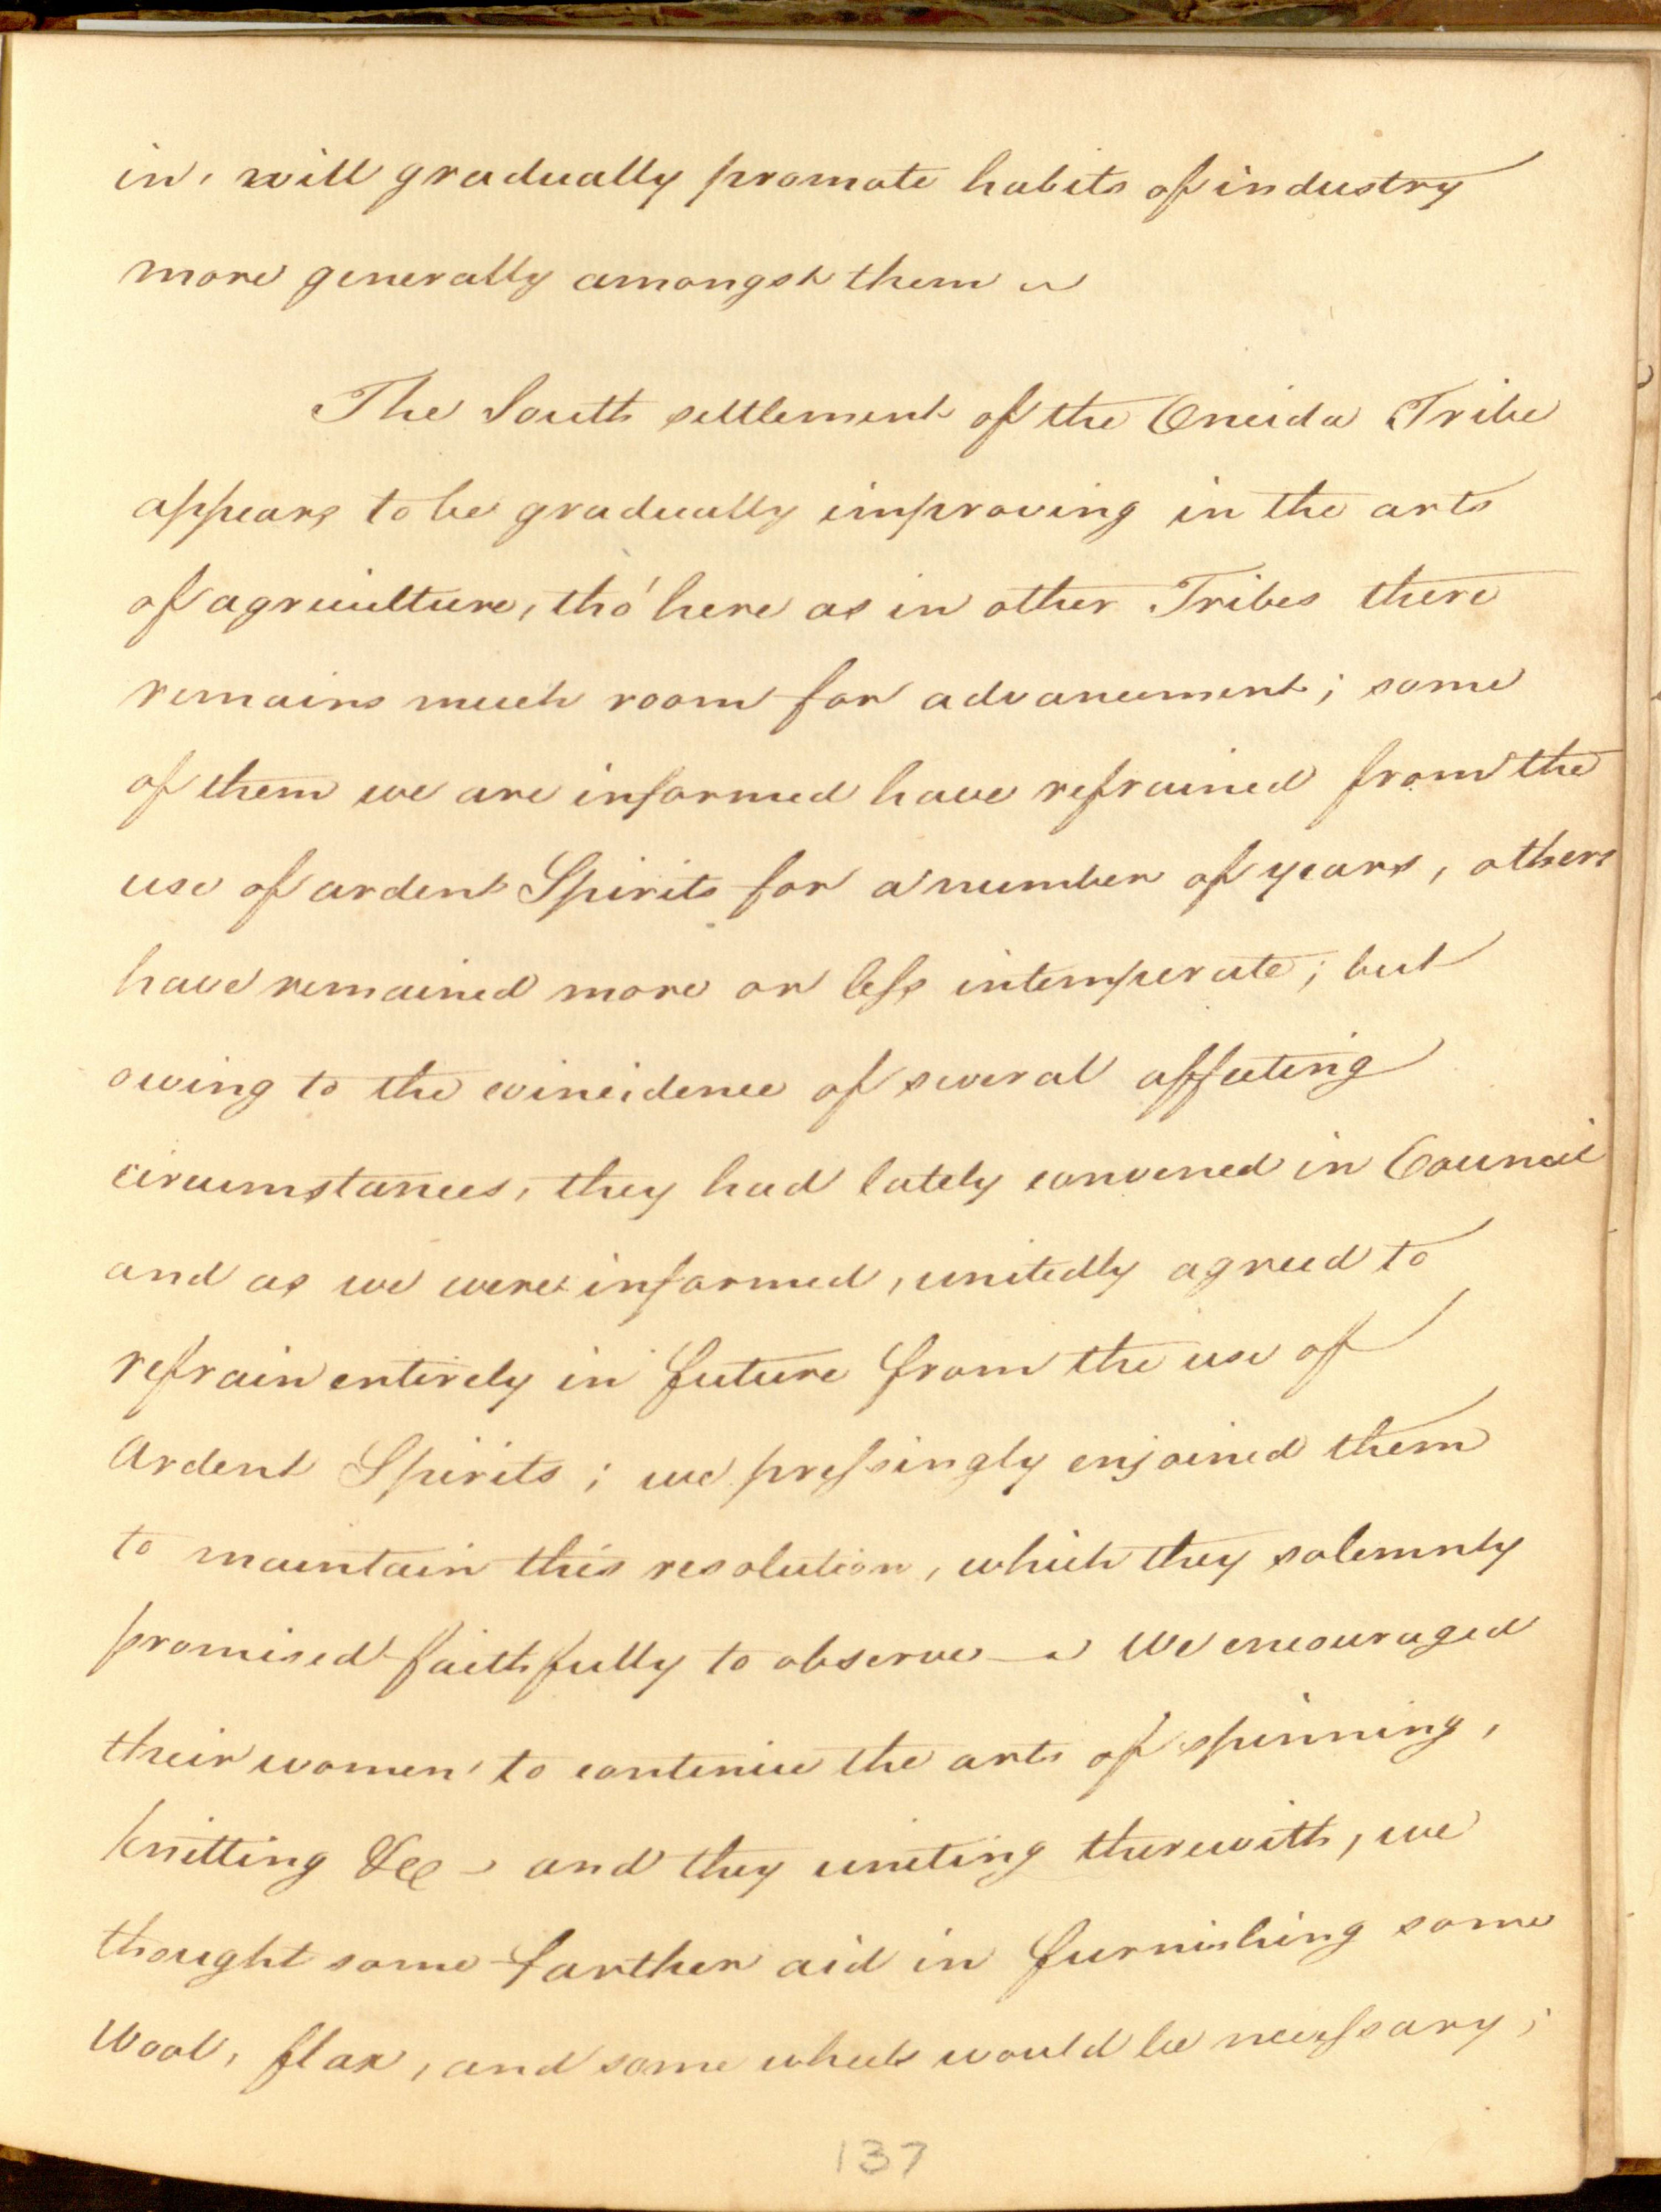 in, will gradually promote habits of industry
more generally amongst them
The South settlement of the Oneida Tribe
appears to be gradually improving in the arts
of agriculture, tho' here as in other Tribes there
remains much room for advancement; some
of them we are informed have refrained from the
use of ardent Spirits for a number of years, others
have remained more or less intemperate; but
owing to the coincidence of several affecting
circumstances, they had lately convened in Council
and as we were informed, unitedly agreed to
refrain entirely in future from the use of
Ardent Spirits; we pressingly enjoined them
to maintain this resolution, which they solemnly
promised faithfully to observe — We encouraged
their women to continue the arts of spinning,
knitting &c - and they uniting therewith, we
thought some farther aid in furnishing some
Wool, flax, and some wheels would be necessary;
137